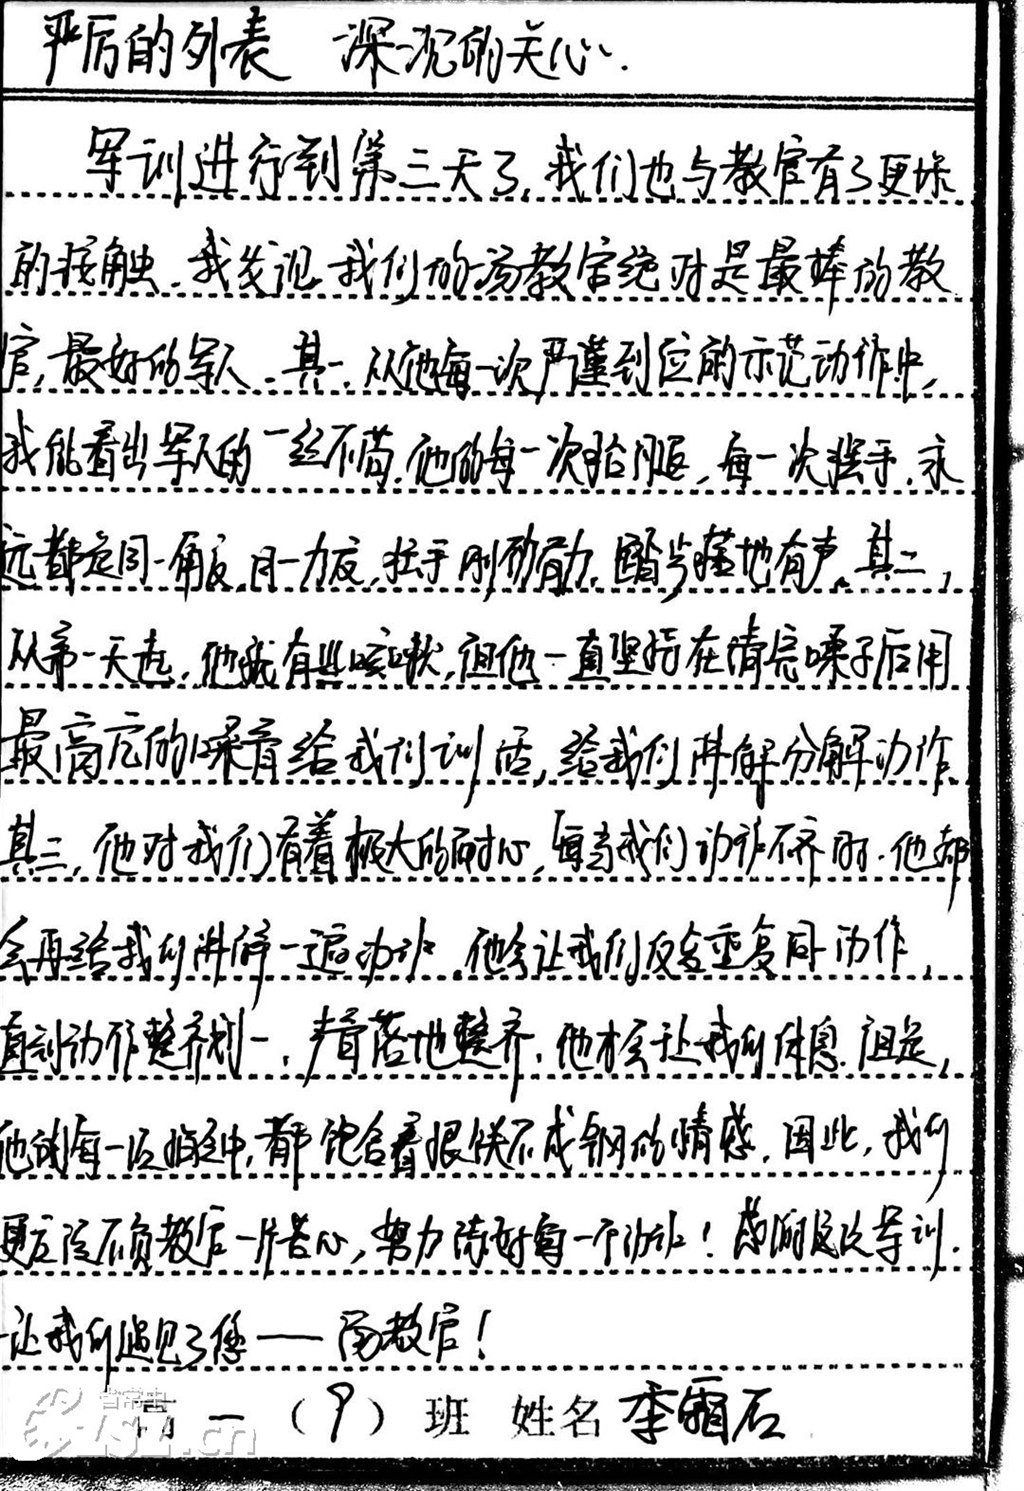 严厉的外表 深沉的关心.
军训进行到第三天了,我们也与教官有了更深
的接触.我发现我们的汤教官绝对是最棒的教
官,最好的军人.其一,从他每一次严谨到位的示范动作中,
我能看出军人的一丝不苟.他的每一次抬腿,每一次摆手,永
远都是同一角度,同一力度,摆手刚劲有力,踏步落地有声.其二,
从第一天起,他就有些咳嗽,但他一直坚持在清完嗓子后用
最高亢的嗓音给我们训话,给我们讲解分解动作
其三,他对我们有着极大的耐心,每当我们动作不齐时.他都
会再给我们讲解一遍动作.他会让我们反复重复同一动作,
直到动作整齐划一,声音落地整齐.他才会让我们休息.但是,
他的每一次中,都饱含着恨铁不成钢的情感.因此,我们
更应该不负教官一片苦心,努力练好每一个动作!感谢这次军训.
让我们遇见了您——汤教官!
高一(9)班 姓名 李霜石
省常中
ZSZ.cn